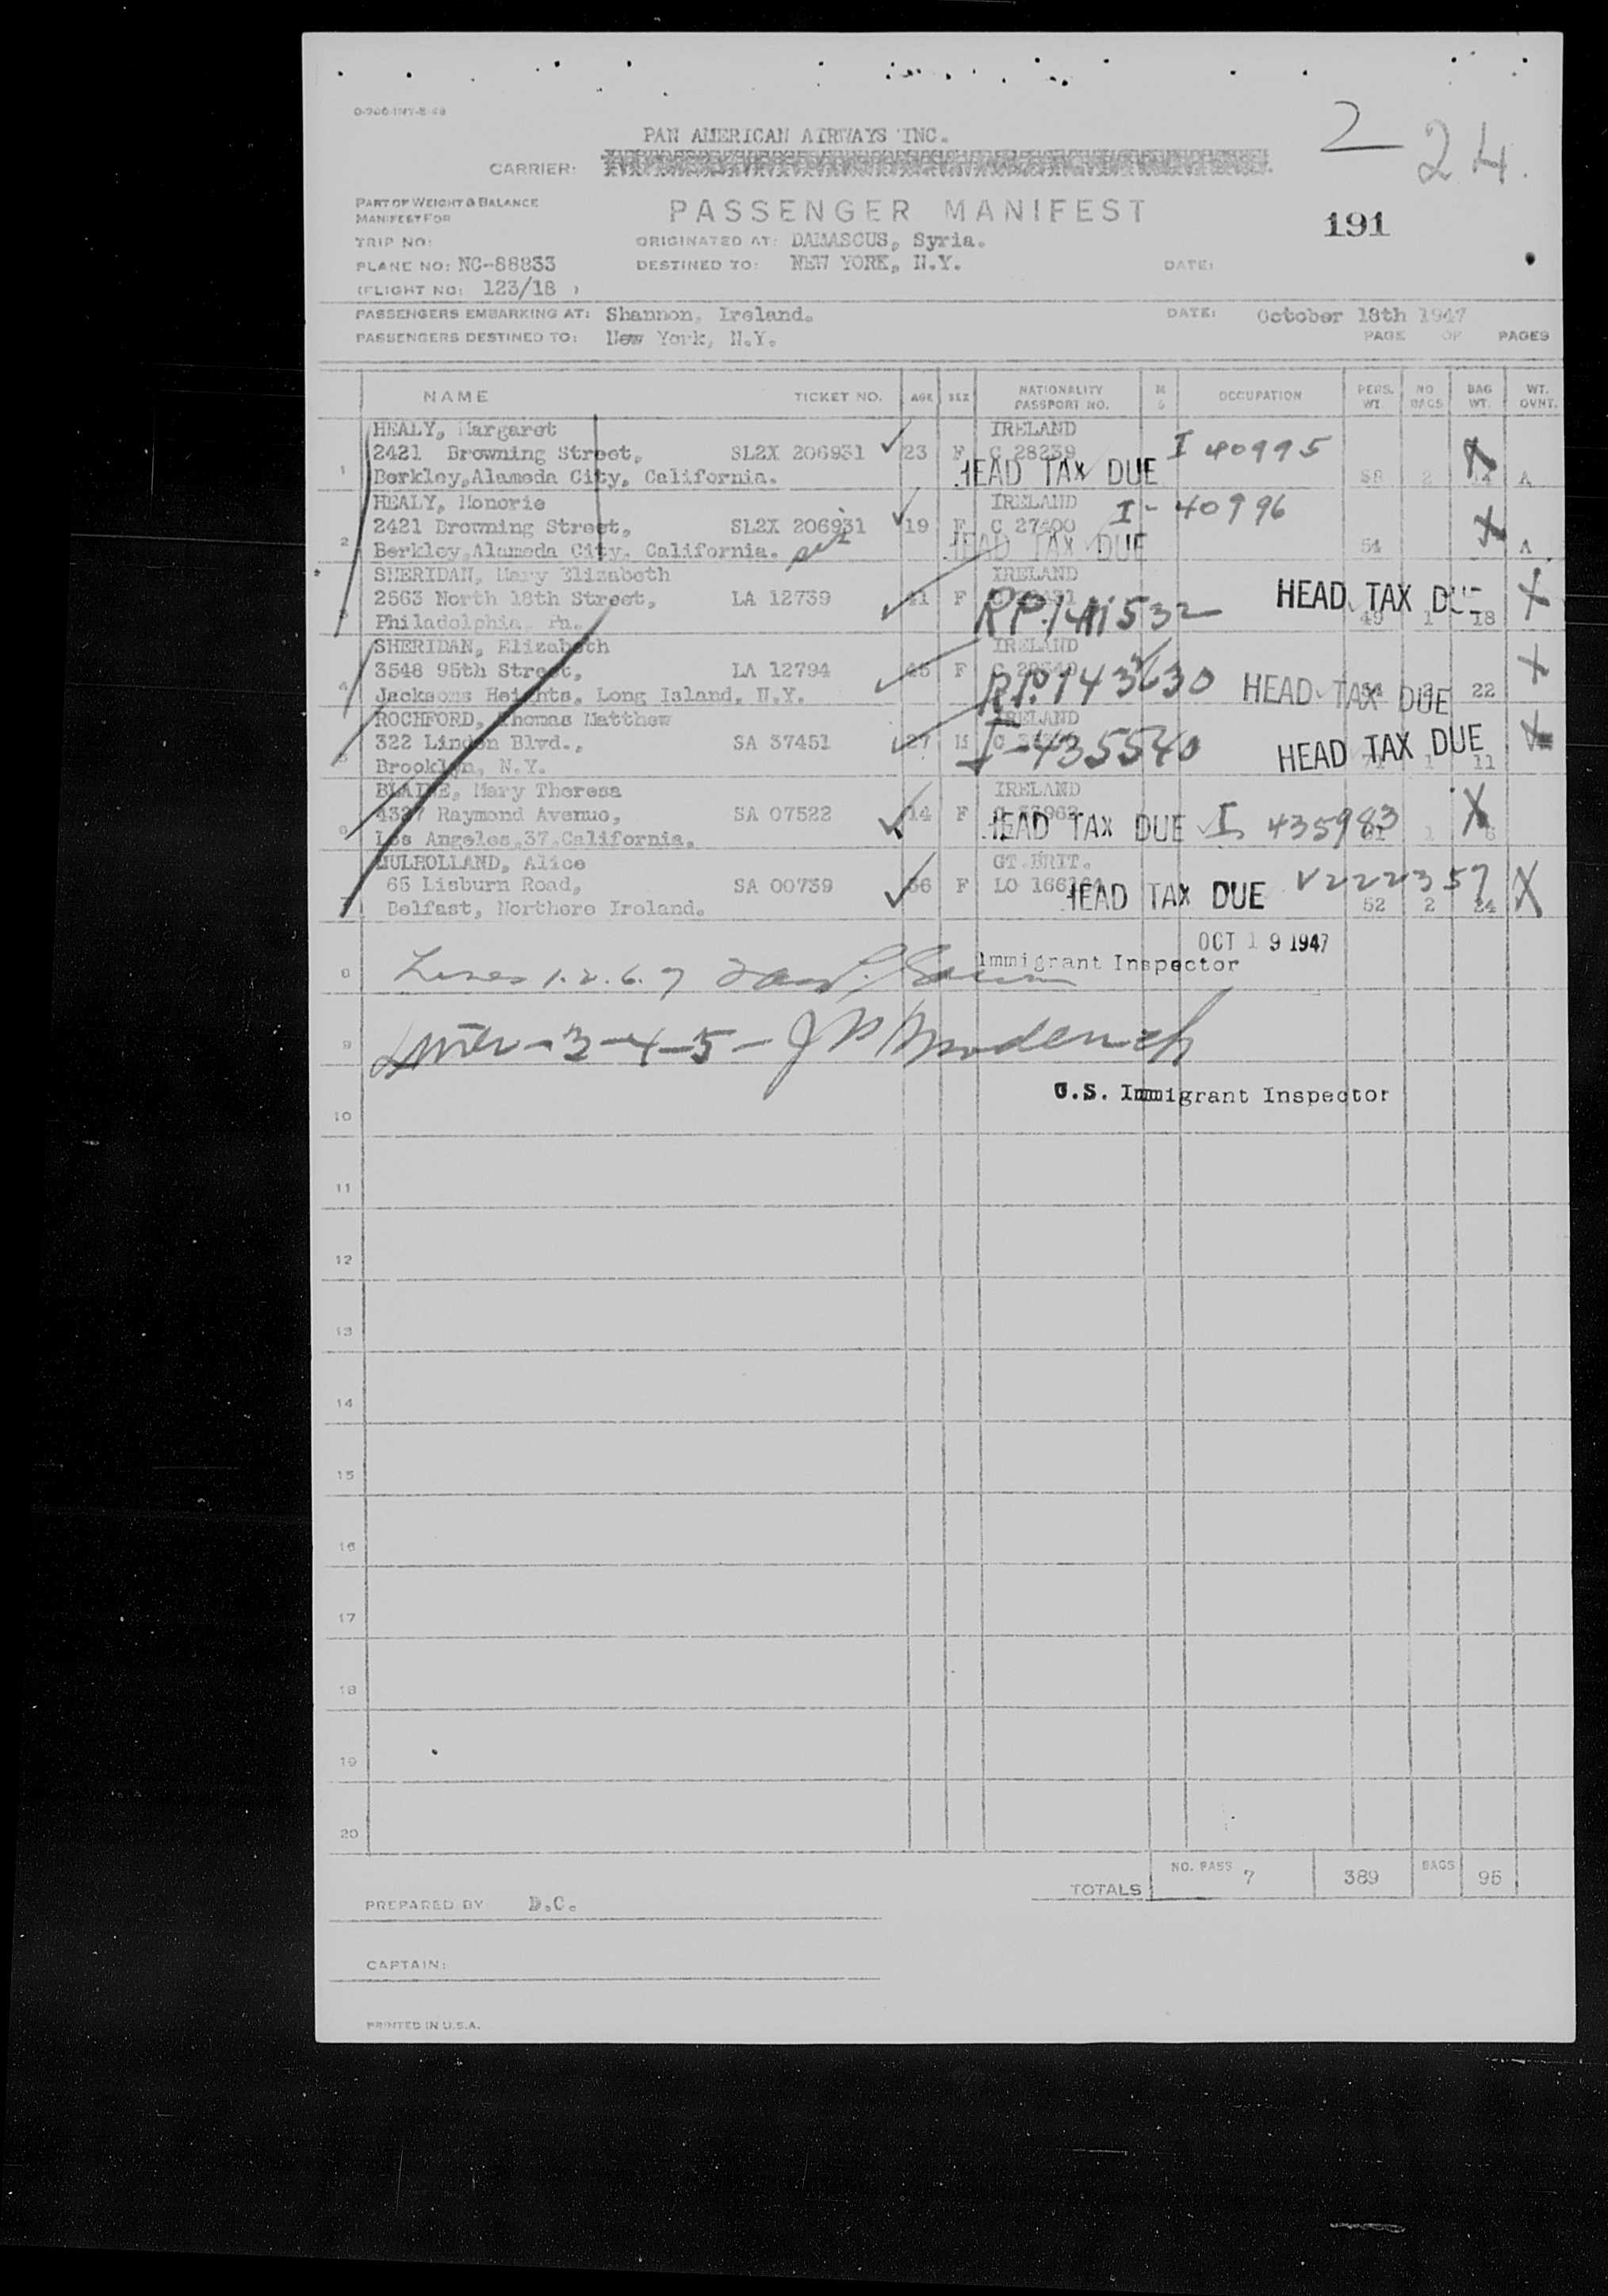 0-706-INT-8-46
PAN AMERICAN AIRWAYS INC.
CARRIER:
2
24.
PART OF WEIGHT & BALANCE
MANIFEST FOR
PASSENGER MANIFEST
191
TRIP NO:
ORIGINATED AT: DAMASCUS, Syria.
PLANE NO: NC-88833
DESTINED TO: NEW YORK, N.Y.
DATE:
(FLIGHT NO: 123/18 )
PASSENGERS EMBARKING AT: Shannon, Ireland.
DATE: October 18th 1947
PASSENGERS DESTINED TO: New York, N.Y.
PAGE OF PAGES
NAME TICKET NO. AGE SEX NATIONALITY PASSPORT NO. M S OCCUPATION PERS. WT. NO. BAGS BAG WT. WT. OVNT.
HEALY, Margaret IRELAND
2421 Browning Street, SL2X 206931 23 F C 28239 I 40995
1 Berkley,Alameda City, California. HEAD TAX DUE 58 2 A
HEALY, Honorie IRELAND I-40996
2421 Browning Street, SL2X 206931 19 F C 27400
2 Berkley,Alameda City, California. HEAD TAX DUE 54 A
SHERIDAN, Mary Elizabeth IRELAND
2563 North 18th Street, LA 12739 41 F HEAD TAX DUE
3 Philadelphia, Pa. 49 1 18
SHERIDAN, Elizabeth IRELAND
3548 95th Street, LA 12794 F RP.143630 HEAD TAX DUE
4 Jacksons Heights, Long Island, N.Y. 22
ROCHFORD, Thomas Matthew IRELAND
322 Linden Blvd., SA 37451 27 M I-435540 HEAD TAX DUE
5 Brooklyn, N.Y. 71 1 11
BLAINE, Mary Theresa IRELAND
4327 Raymond Avenue, SA 07522 14 F HEAD TAX DUE I 435983
6 Los Angeles,37,California. 1 6
MULHOLLAND, Alice GT.BRIT.
65 Lisburn Road, SA 00739 56 F LO HEAD TAX DUE V222357
7 Belfast, Northere Ireland. 52 2 24
OCT 19 1947
8 Lines 1.2.6.7 Immigrant Inspector
9 Lines-3-4-5-
U.S. Immigrant Inspector
10
11
12
13
14
15
16
17
18
19
20
TOTALS NO. PASS 7 389 BAGS 95
PREPARED BY D.C.
CAPTAIN:
PRINTED IN U.S.A.